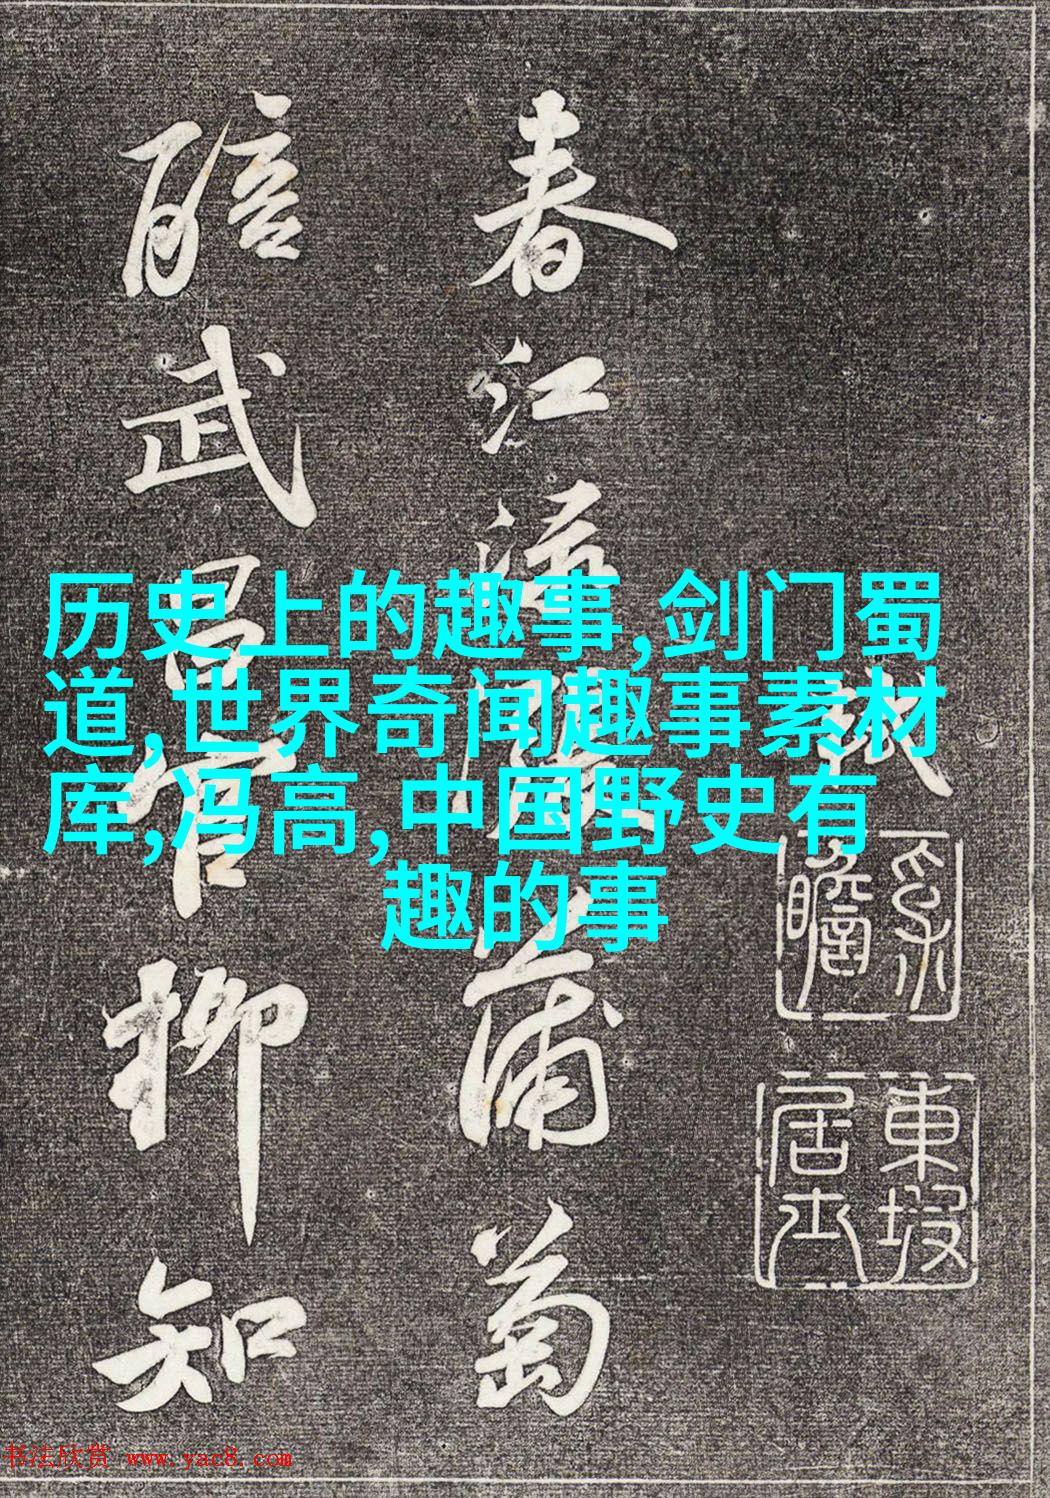 历史上的趣事,剑门蜀
道,世界奇闻趣事素材
库,冯高,中国野史有
趣的事
東坡居士
春江淥漲蒲萄
醅武昌官柳知
书法欣赏 www.yac8.com